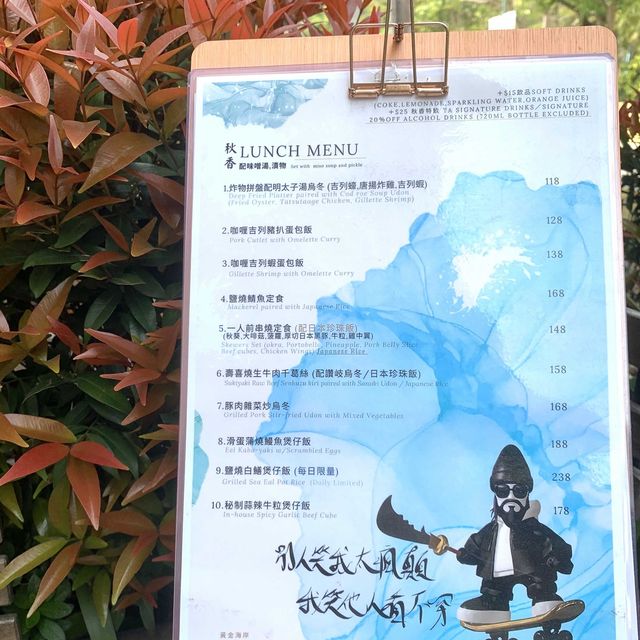 +$15飲品SOFT DRINKS
(COKE,LEMONADE,SPARKLING WATER,ORANGE JUICE)
+$25 秋香特飲 7A SIGNATURE DRINKS／SIGNATURE
20%OFF ALCOHOL DRINKS (720ML BOTTLE EXCLUDED)
秋香 LUNCH MENU
配味噌湯,漬物 Set with miso soup and pickle
1.炸物拼盤配明太子湯烏冬 (吉列蠔,唐揚炸雞,吉列蝦) 118
Deep Fried Platter paired with Cod roe Soup Udon
(Fried Oyster, Tatsutaage Chicken, Gillette Shrimp)
2.咖喱吉列豬扒蛋包飯 128
Pork Cutlet with Omelette Curry
3.咖喱吉列蝦蛋包飯 138
Gillette Shrimp with Omelette Curry
4.鹽燒鯖魚定食 168
Mackerel paired with Japanese Rice
5.一人前串燒定食 (配日本珍珠飯) 148
(秋葵,大啡菇,菠蘿,厚切日本黑豚,牛粒,雞中翼)
Skewers Set (okra, Portobello, Pineapple, Pork Belly Slice
Beef cubes, Chicken Wings) Japanese Rice
6.壽喜燒生牛肉千葛絲 (配讚岐烏冬/日本珍珠飯) 158
Sukiyaki Raw Beef Senkuzu kiri paired with Sanuki Udon / Japanese Rice
7.豚肉雜菜炒烏冬 168
Grilled Pork Stir-fried Udon with Mixed Vegetables
8.滑蛋蒲燒鰻魚煲仔飯 188
Eel Kaba-yaki w/Scrambled Eggs
9.鹽燒白鱔煲仔飯 (每日限量) 238
Grilled Sea Eal Pot Rice (Daily Limited)
10.秘制蒜辣牛粒煲仔飯 178
In-house Spicy Garlic Beef Cube
別人笑我太瘋癲
我笑他人看不穿
黃金海岸